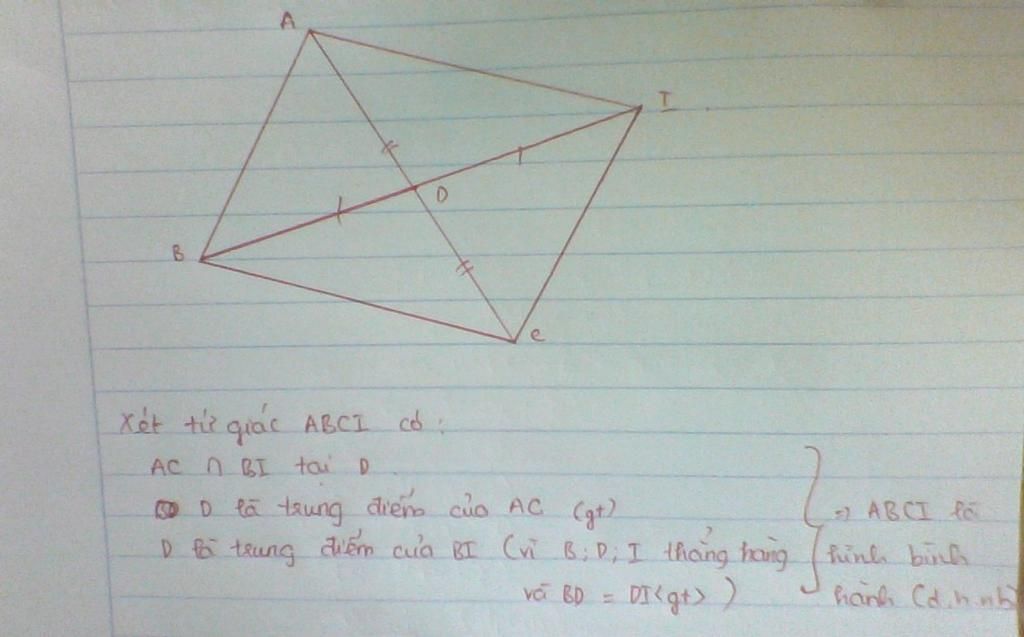 A
I
D
B
C
Xét tứ giác ABCI có:
AC ∩ BI tại D
D là trung điểm của AC (gt)
D là trung điểm của BI (vì B; D; I thẳng hàng
và BD = DI <gt> )
=> ABCI là
hình bình
hành (d.h.nb)